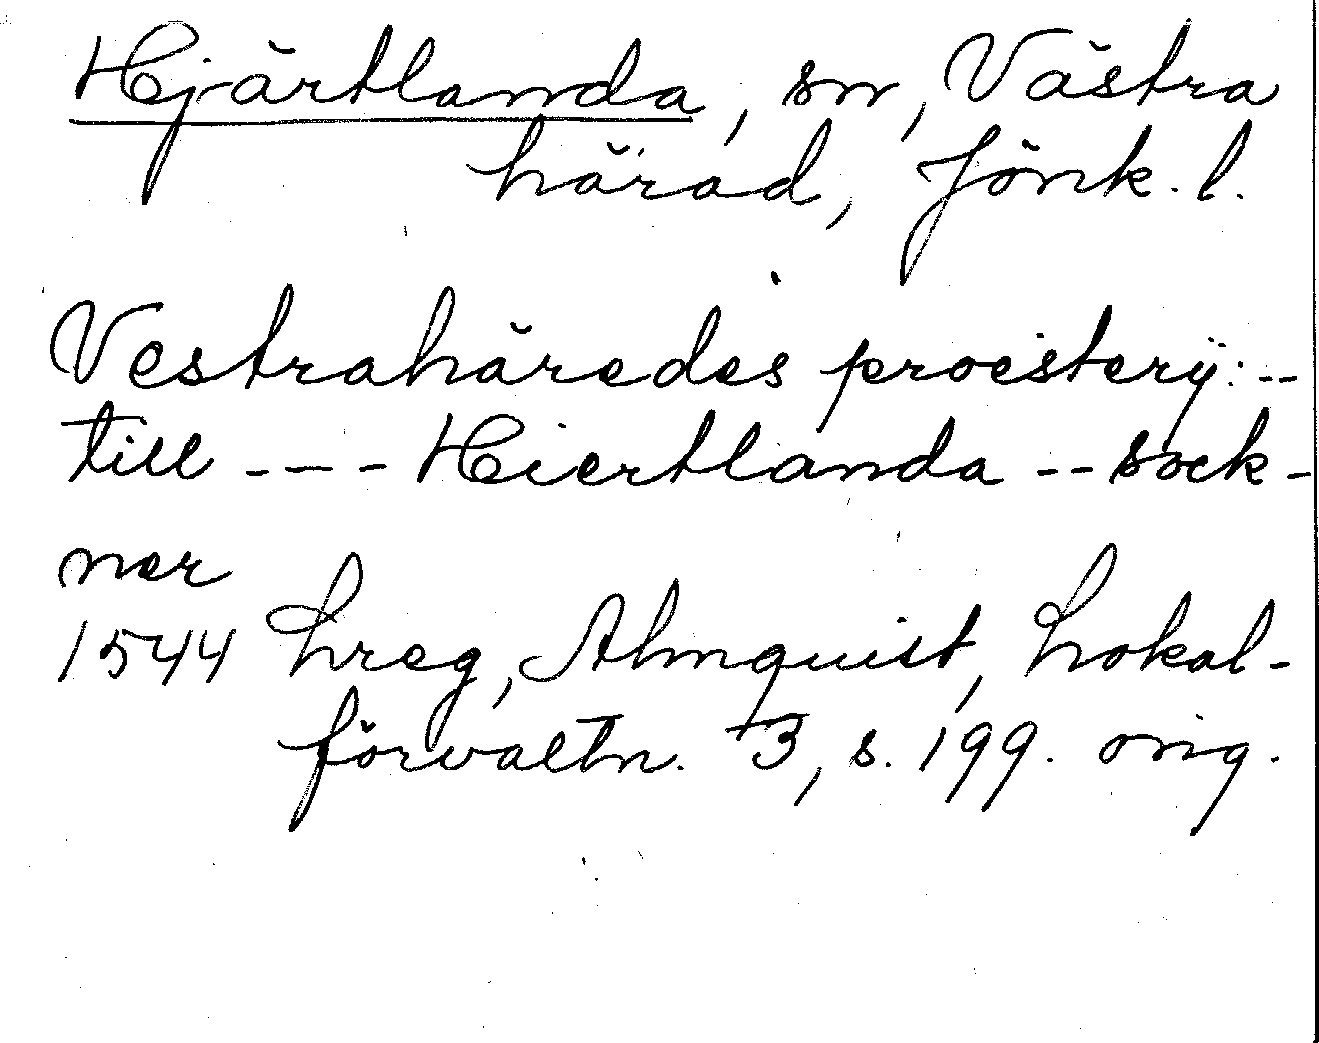 Hjärtlanda, sn, Västra
härad, Jönk. l.
Vestrahäredes proestery: --
till --- Hiertlanda -- sock-
ner
1544 Lreg, Almquist, Lokal-
förvaltn. 3, s. 199. orig.